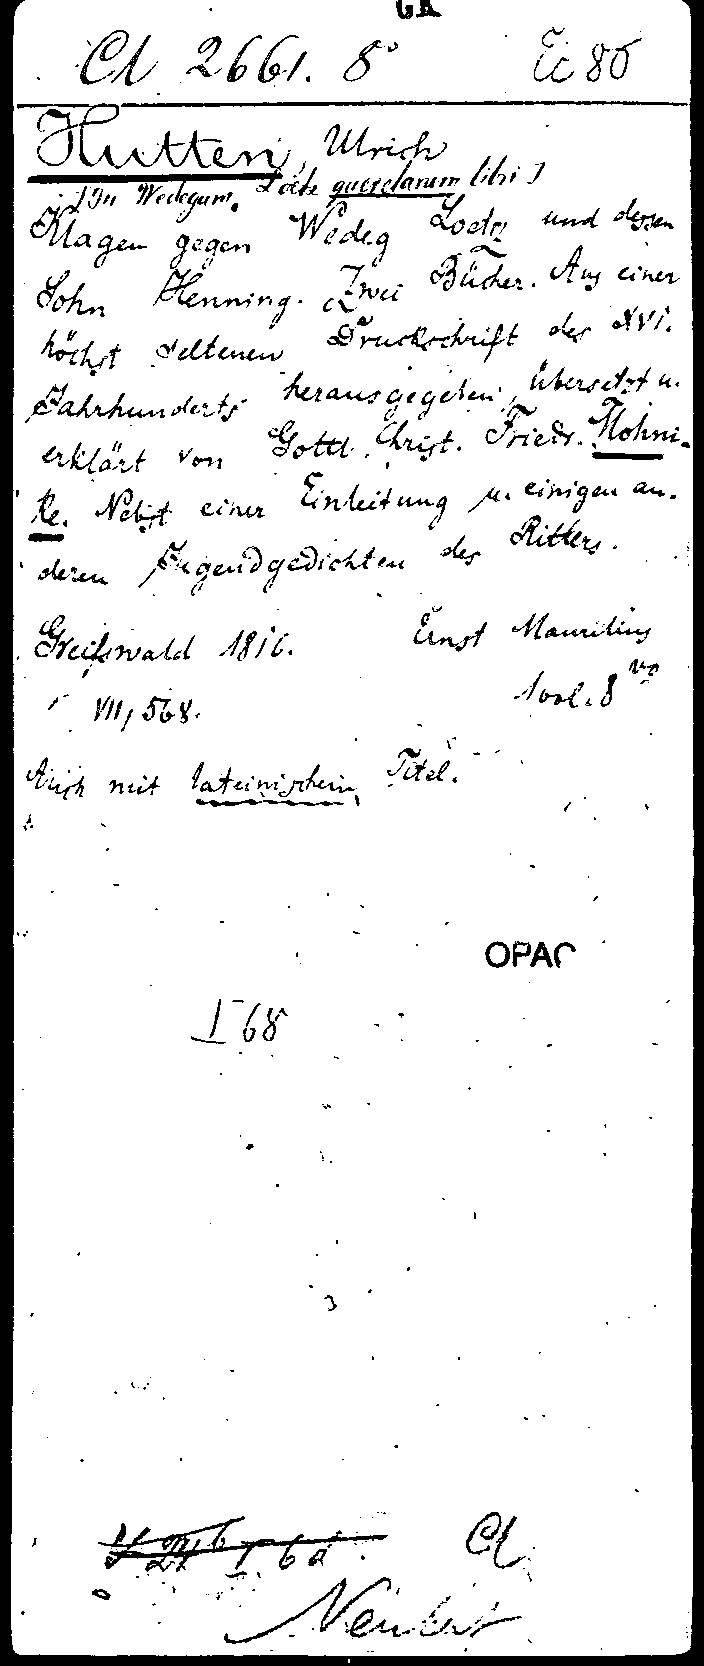 GK
Cl 2661. 8° Ec 80
Hutten, Ulrich
[In Wedegum Loetz querelarum libri]
Klagen gegen Wedeg Loetz und dessen
Sohn Henning. Zwei Bücher. Aus einer
höchst seltenen Druckschrift des XVI.
Jahrhunderts herausgegeben, übersetzt u.
erklärt von Gottl. Christ. Friedr. Mohni-
ke. Nebst einer Einleitung u. einigen an-
deren Jugendgedichten des Ritters.
Greifswald 1816. Ernst Mauritius
VII, 568. 1 vol. 8 vo
Auch mit lateinischem Titel.
OPAC
I 68
Cl